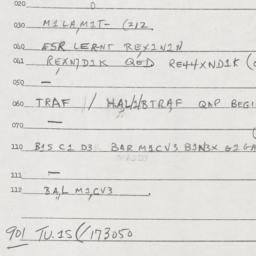 020
030 M1LA,M1T- (212
040 ESR LERNT REX1N1N
041 REXN7D1K QED RE44XND1K (
—
060 TRAF / HAL/1/BTRAF QNP BEGI
070 —
110 B15 C1 D3 BAR M1CV3 B1N3X G2 GA
111 —
112 BA,L M1,CV3 .
901 TU.15(/173050